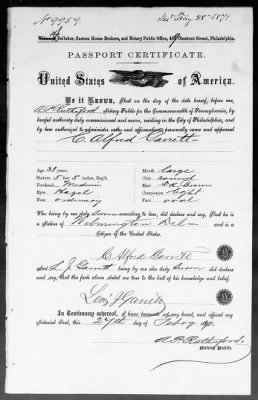 No 9959
Custom House Broker, and Notary Public Office, Chestnut Street, Philadelphia.
PASSPORT CERTIFICATE.
United States of America.
Be it Known, That on the day of the date hereof, before me,
Notary Public for the Commonwealth of Pennsylvania, by
lawful authority duly commissioned and sworn, residing in the City of Philadelphia, and
by law authorized to administer oaths and affirmations, personally came and appeared
C. Alfred Garrett
Age, 31 years.
Stature, 5 ft 5 inches, Eng.
Forehead, Medium
Eyes, Hazel
Nose, ordinary
Mouth, large
Chin, round
Hair, Dk Brown
Complexion, Light
Face, oval
Who being by me duly sworn according to law, did declare and say, That he is
a native of Wilmington Del and a
Citizen of the United States.
C Alfred Garrett
being by me also duly sworn did declare
and say, that the facts above stated are true to the best of his knowledge and belief.
Levi J Garrett
In Testimony whereof, I have hereunto set my hand, and affixed my
Notarial Seal, this 27th day of Feby
Notary Public.